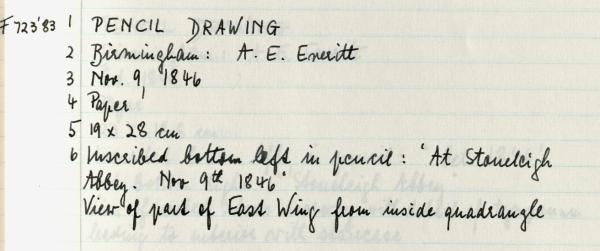 F723'83 1 PENCIL DRAWING
2 Birmingham: A. E. Everitt
3 Nov. 9, 1846
4 Paper
5 19 x 28 cm
6 Inscribed bottom left in pencil: "At Stoneleigh
Abbey. Nov 9th 1846"
View of part of East Wing from inside quadrangle